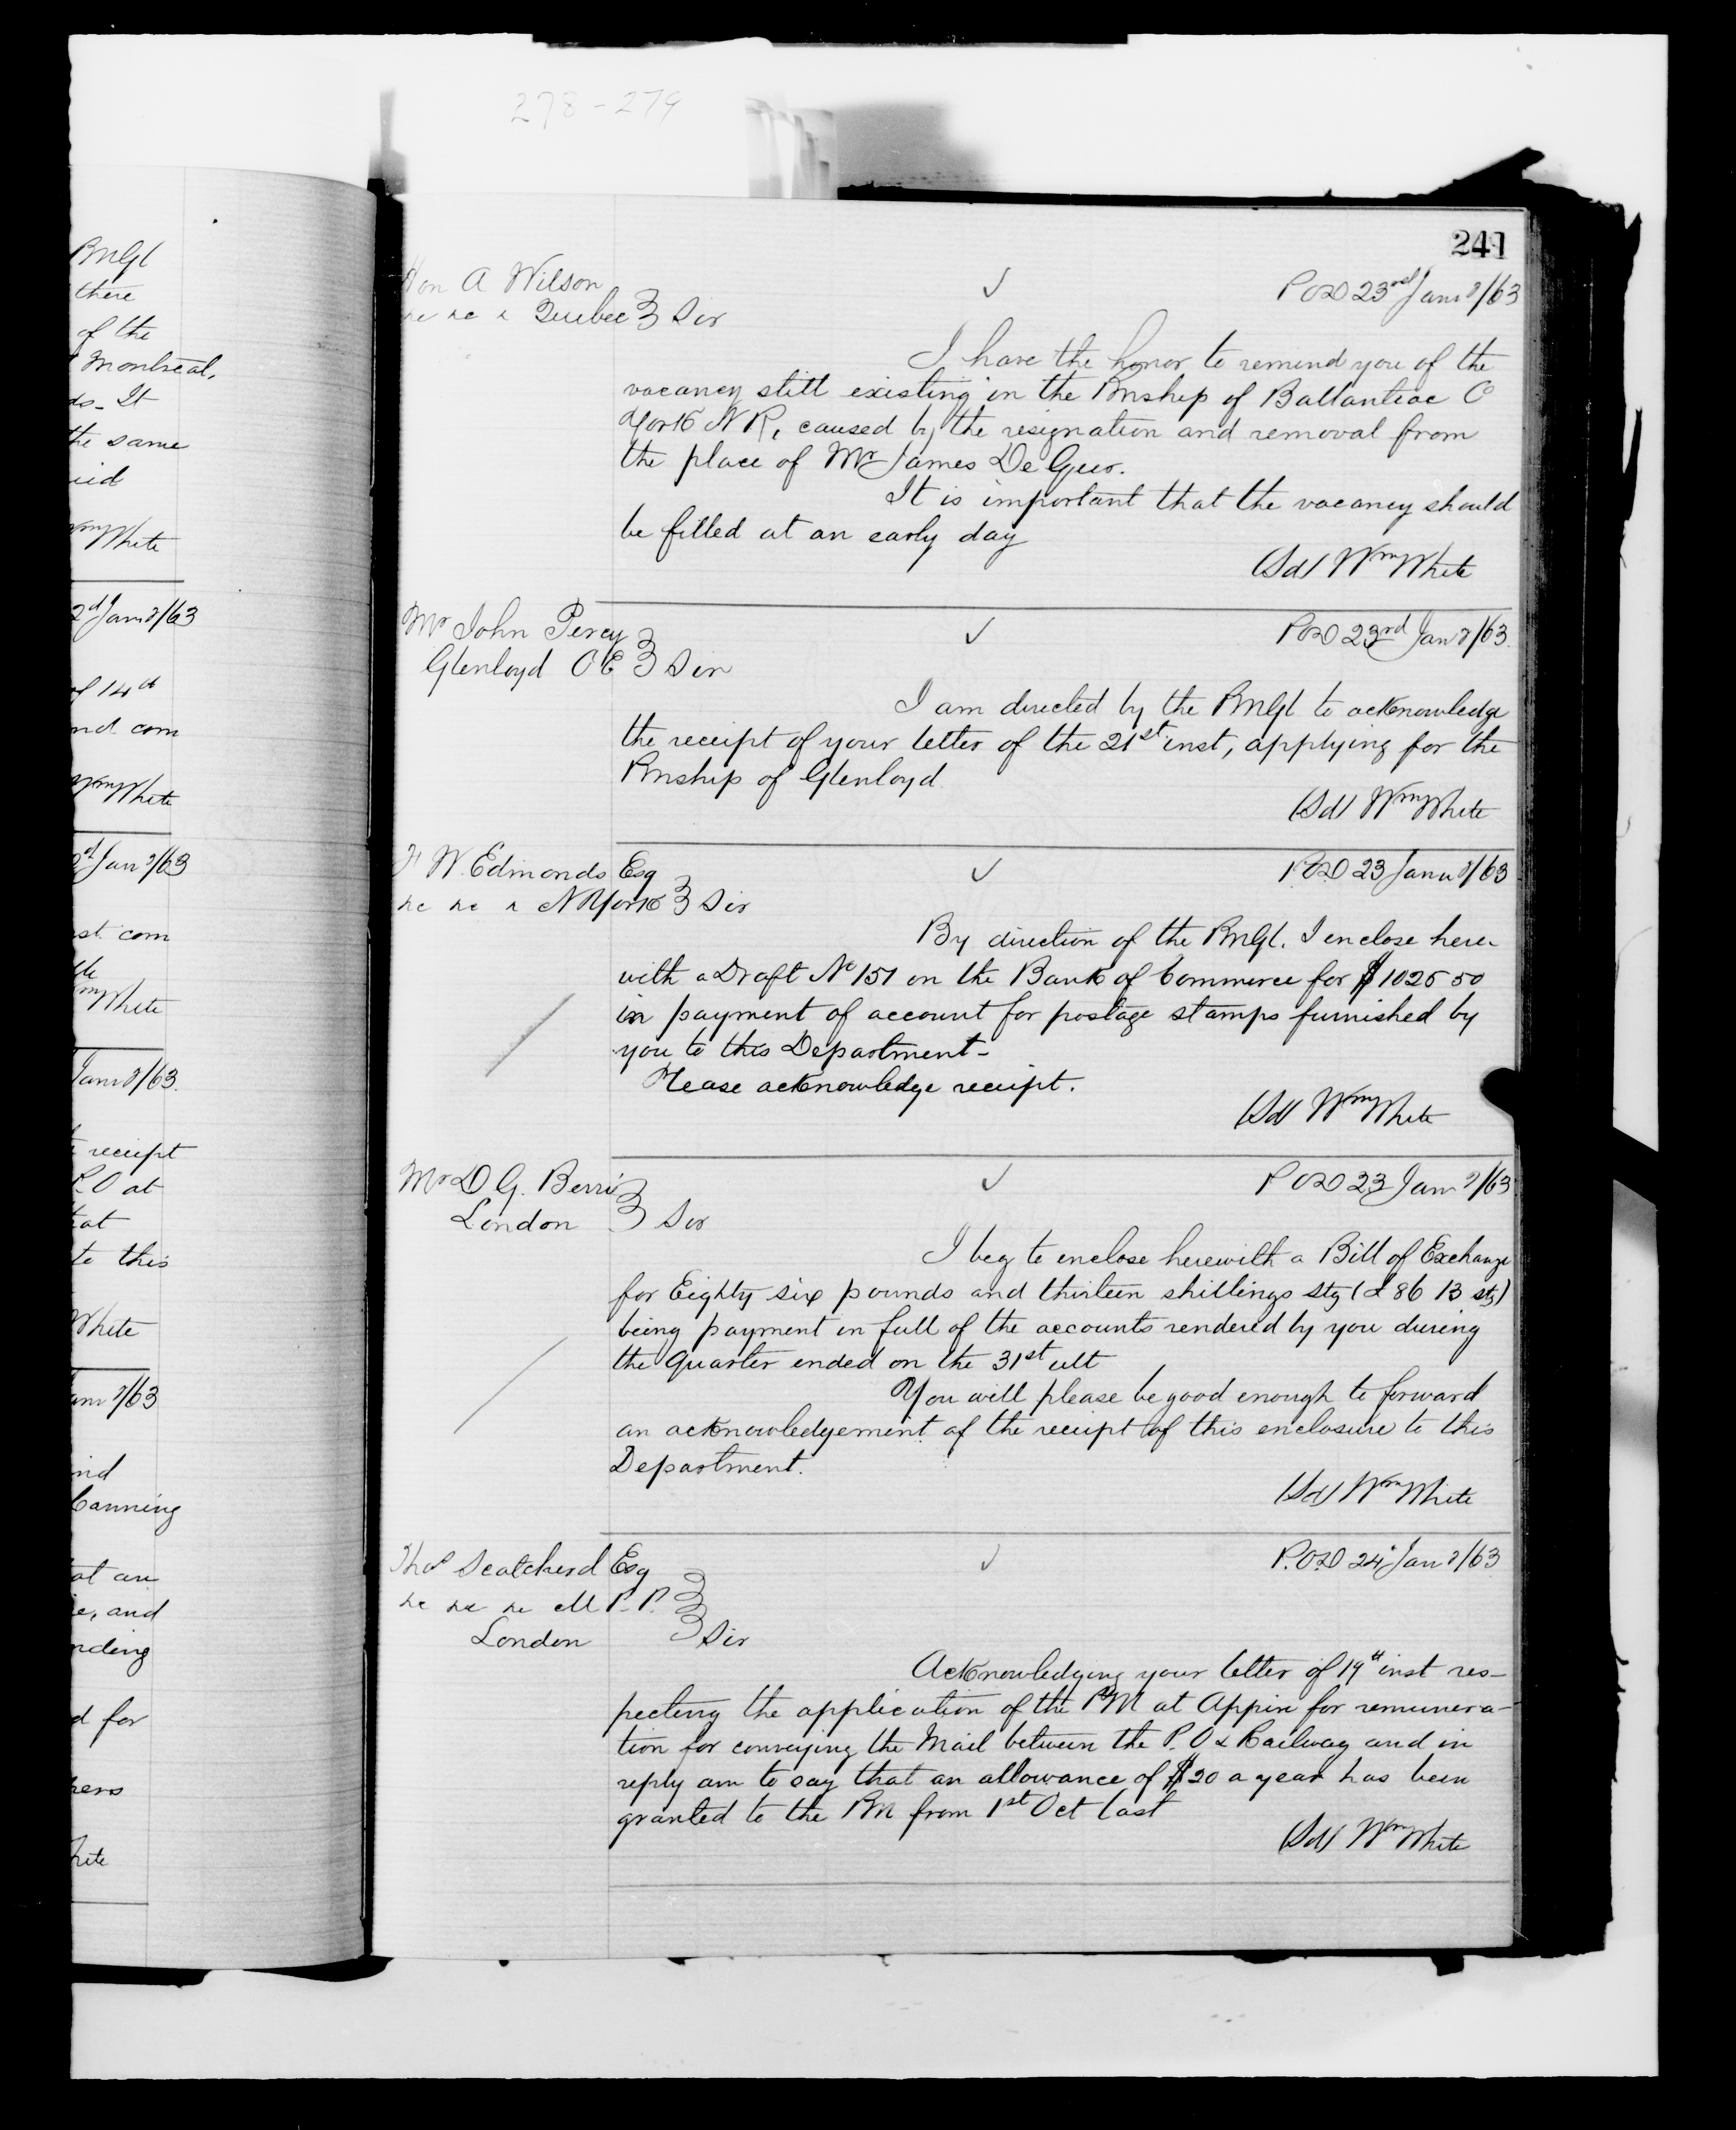 278-279
241
Hon A Wilson
&c &c & Quebec } Sir
POD 23rd Jany/63
I have the honor to remind you of the
vacancy still existing in the Pmship of Ballantrae C
York N R, caused by the resignation and removal from
the place of Mr James De Geer.
It is important that the vacancy should
be filled at an early day
(Sd) Wm White
Mr John Percy
Glenloyd C E } Sir
POD 23rd Jany/63.
I am directed by the PmGl to acknowledge
the receipt of your letter of the 21st inst, applying for the
Pmship of Glenloyd
(Sd) Wm White
F W. Edmonds Esq
&c &c & N York } Sir
POD 23 Jany/63
By direction of the PmGl. I enclose here-
with a Draft No 151 on the Bank of Commerce for $1025 50
in payment of account for postage stamps furnished by
you to this Department-
Please acknowledge receipt.
(Sd) Wm White
Mr D G. Berri
London } Sir
POD 23 Jany/63
I beg to enclose herewith a Bill of Exchange
for Eighty six pounds and thirteen shillings stg (£86 13 stg)
being payment in full of the accounts rendered by you during
the Quarter ended on the 31st ult
You will please be good enough to forward
an acknowledgement of the receipt of this enclosure to this
Department.
(Sd) Wm White
Thos Scatcherd Esq
&c &c &c M P. P.
London } Sir
P.O.D 24 Jany/63
Acknowledging your letter of 19th inst res-
pecting the application of the PM at Appin for remunera-
tion for conveying the Mail between the P. O & Railway and in
reply am to say that an allowance of $20 a year has been
granted to the PM from 1st Oct last
(Sd) Wm White
PmGl
there
of the
Montreal,
do- It
the same
Wm White
2d Jany/63
of 14th
nd com
Wm White
2d Jany/63
st. com
Wm White
Jany/63.
receipt
P.O at
to this
White
Jany/63
Canning
at an
e, and
d for
White